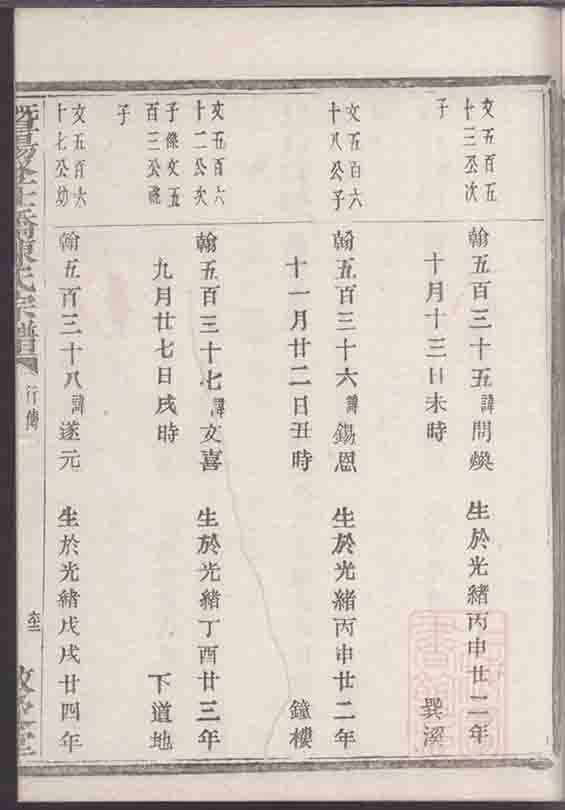 文五百五
十三公次
子
翰五百三十五諱問煥 生於光緒丙申廿二年
十月十三日未時 巽溪
文五百六
十八公子
翰五百三十六諱錫恩 生於光緒丙申廿二年
十一月廿二日丑時 鐘樓
文五百六
十二公次
子係文五
百三公祧
子
翰五百三十七諱文喜 生於光緒丁酉廿三年
九月廿七日戌時 下道地
文五百六
十七公幼
翰五百三十八諱遂元 生於光緒戊戌廿四年
陳氏宗譜 行傳